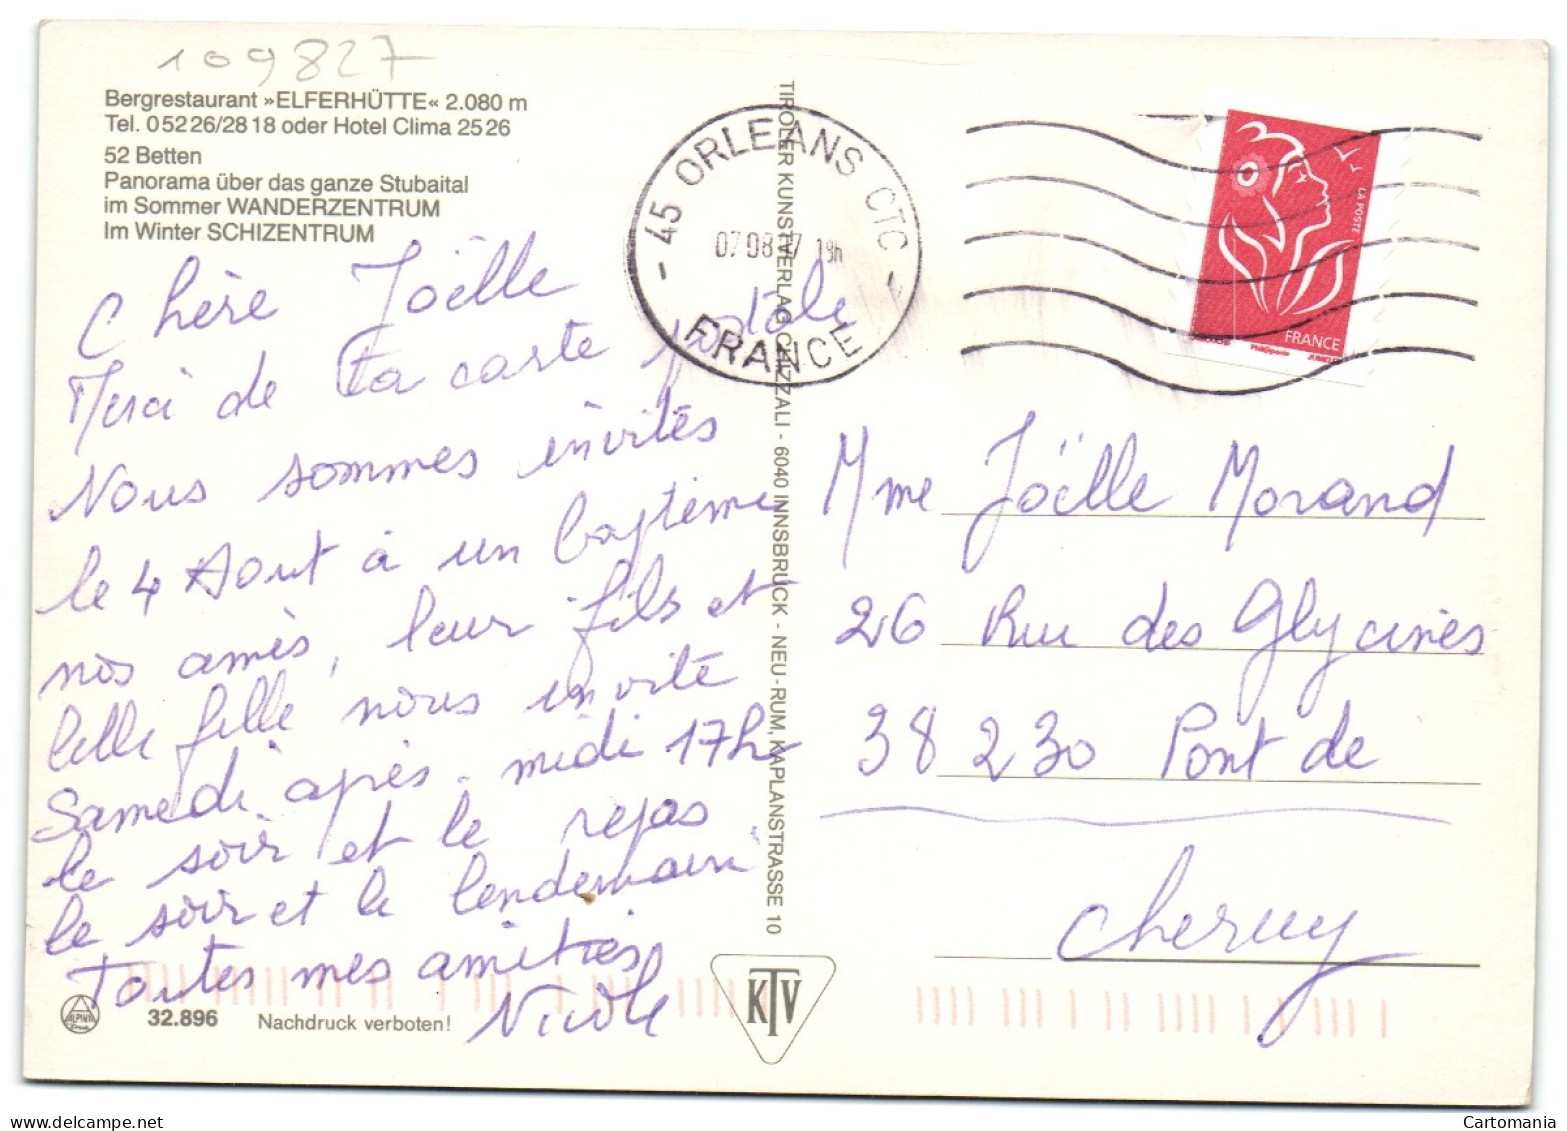 109827
Bergrestaurant »ELFERHÜTTE« 2.080 m
Tel. 05226/2818 oder Hotel Clima 2526
52 Betten
Panorama über das ganze Stubaital
im Sommer WANDERZENTRUM
Im Winter SCHIZENTRUM
Chère Joëlle
Merci de ta carte postale
Nous sommes invités
le 4 Aout à un baptème
nos amis, leur fils et
belle fille nous invite
Samedi après-midi 17h
le soir et le repas
le soir et le lendemain
Toutes mes amitiés
Nicole
32.896 Nachdruck verboten!
ALPINA
TIROLER KUNSTVERLAG CHIZZALI - 6040 INNSBRUCK - NEU-RUM, KAPLANSTRASSE 10
KTV
- 45 ORLEANS CTC -
07 08 17 19h
FRANCE
LA POSTE
FRANCE
Mme Joëlle Morand
26 Rue des Glycines
38230 Pont de
Cheruy
delcampe.net
Cartomania